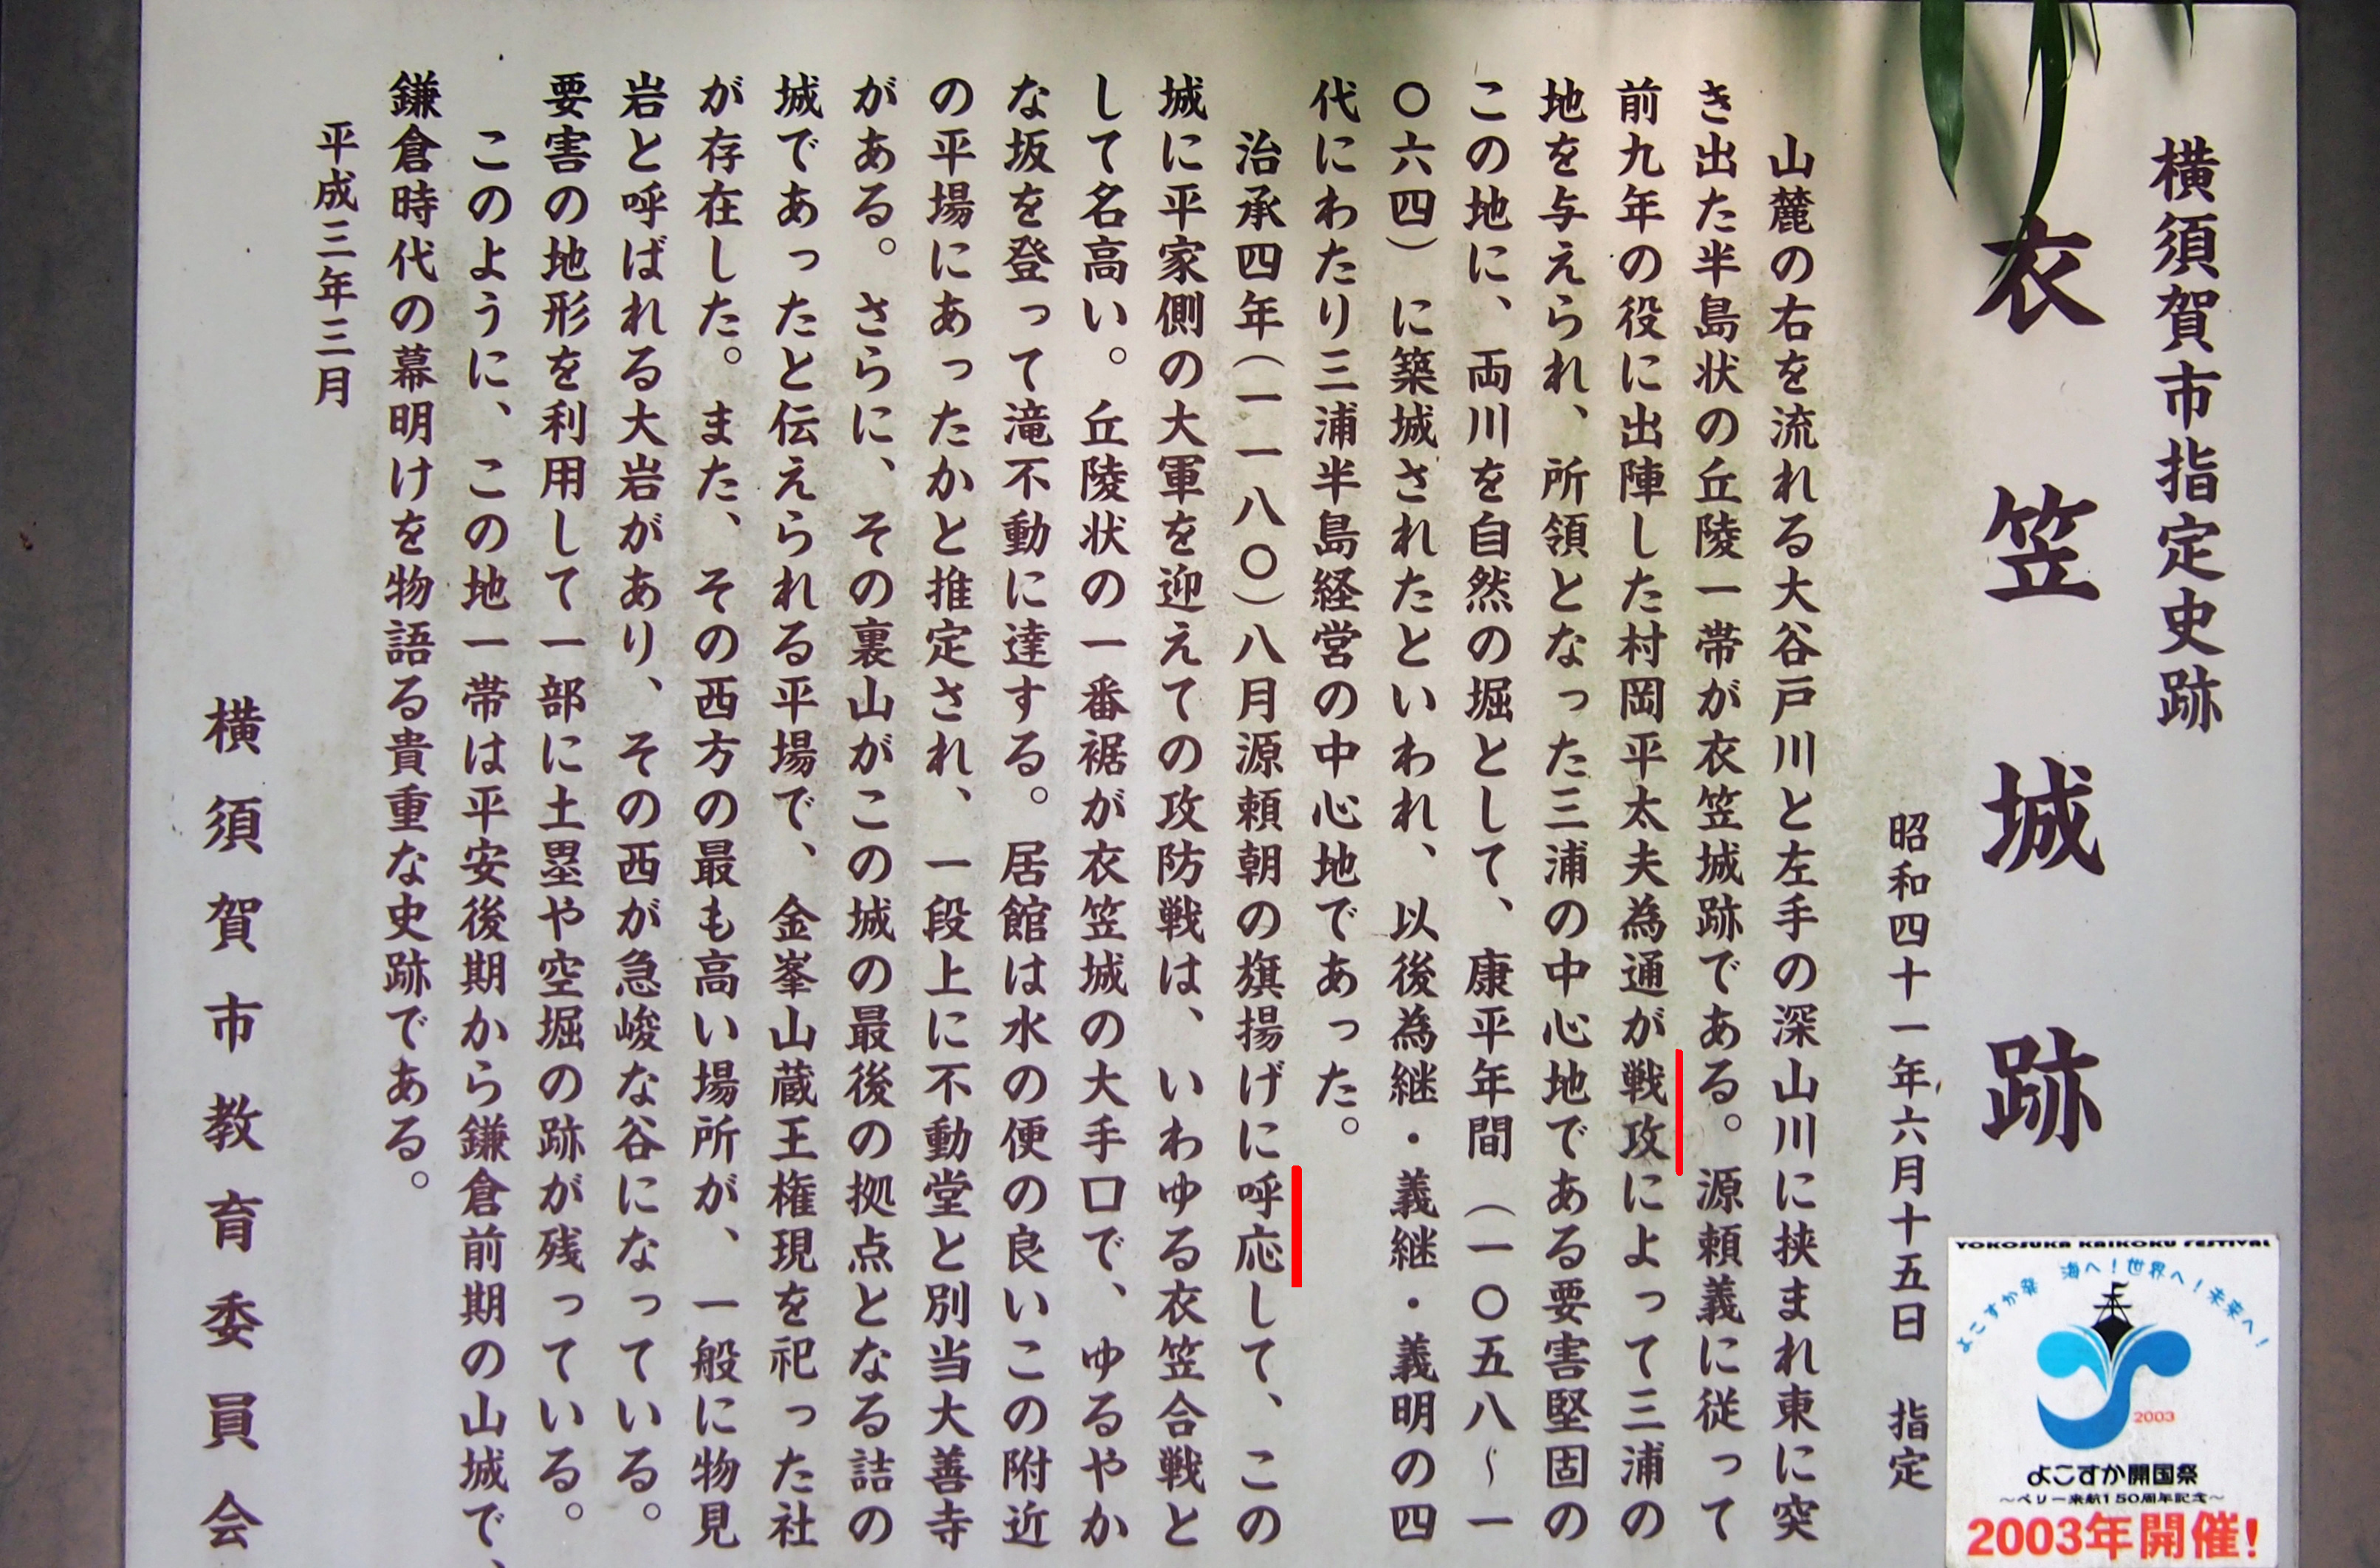 横須賀市指定史跡
衣笠城跡
昭和四十一年六月十五日 指定
山麓の右を流れる大谷戸川と左手の深山川に挟まれ東に突
き出た半島状の丘陵一帯が衣笠城跡である。源頼義に従って
前九年の役に出陣した村岡平太夫為通が戦攻によって三浦の
地を与えられ、所領となった三浦の中心地である要害堅固の
この地に、両川を自然の堀として、康平年間(一〇五八〜一
〇六四)に築城されたといわれ、以後為継・義継・義明の四
代にわたり三浦半島経営の中心地であった。
治承四年(一一八〇)八月源頼朝の旗揚げに呼応して、この
城に平家側の大軍を迎えての攻防戦は、いわゆる衣笠合戦と
して名高い。丘陵状の一番裾が衣笠城の大手口で、ゆるやか
な坂を登って滝不動に達する。居館は水の便の良いこの附近
の平場にあったかと推定され、一段上に不動堂と別当大善寺
がある。さらに、その裏山がこの城の最後の拠点となる詰の
城であったと伝えられる平場で、金峯山蔵王権現を祀った社
が存在した。また、その西方の最も高い場所が、一般に物見
岩と呼ばれる大岩があり、その西が急峻な谷になっている。
要害の地形を利用して一部に土塁や空堀の跡が残っている。
このように、この地一帯は平安後期から鎌倉前期の山城で、
鎌倉時代の幕明けを物語る貴重な史跡である。
平成三年三月
横須賀市教育委員会
YOKOSUKA KAIKOKU FESTIVAL
よこすか発 海へ!世界へ!未来へ!
2003
よこすか開国祭
〜ペリー来航150周年記念〜
2003年開催!